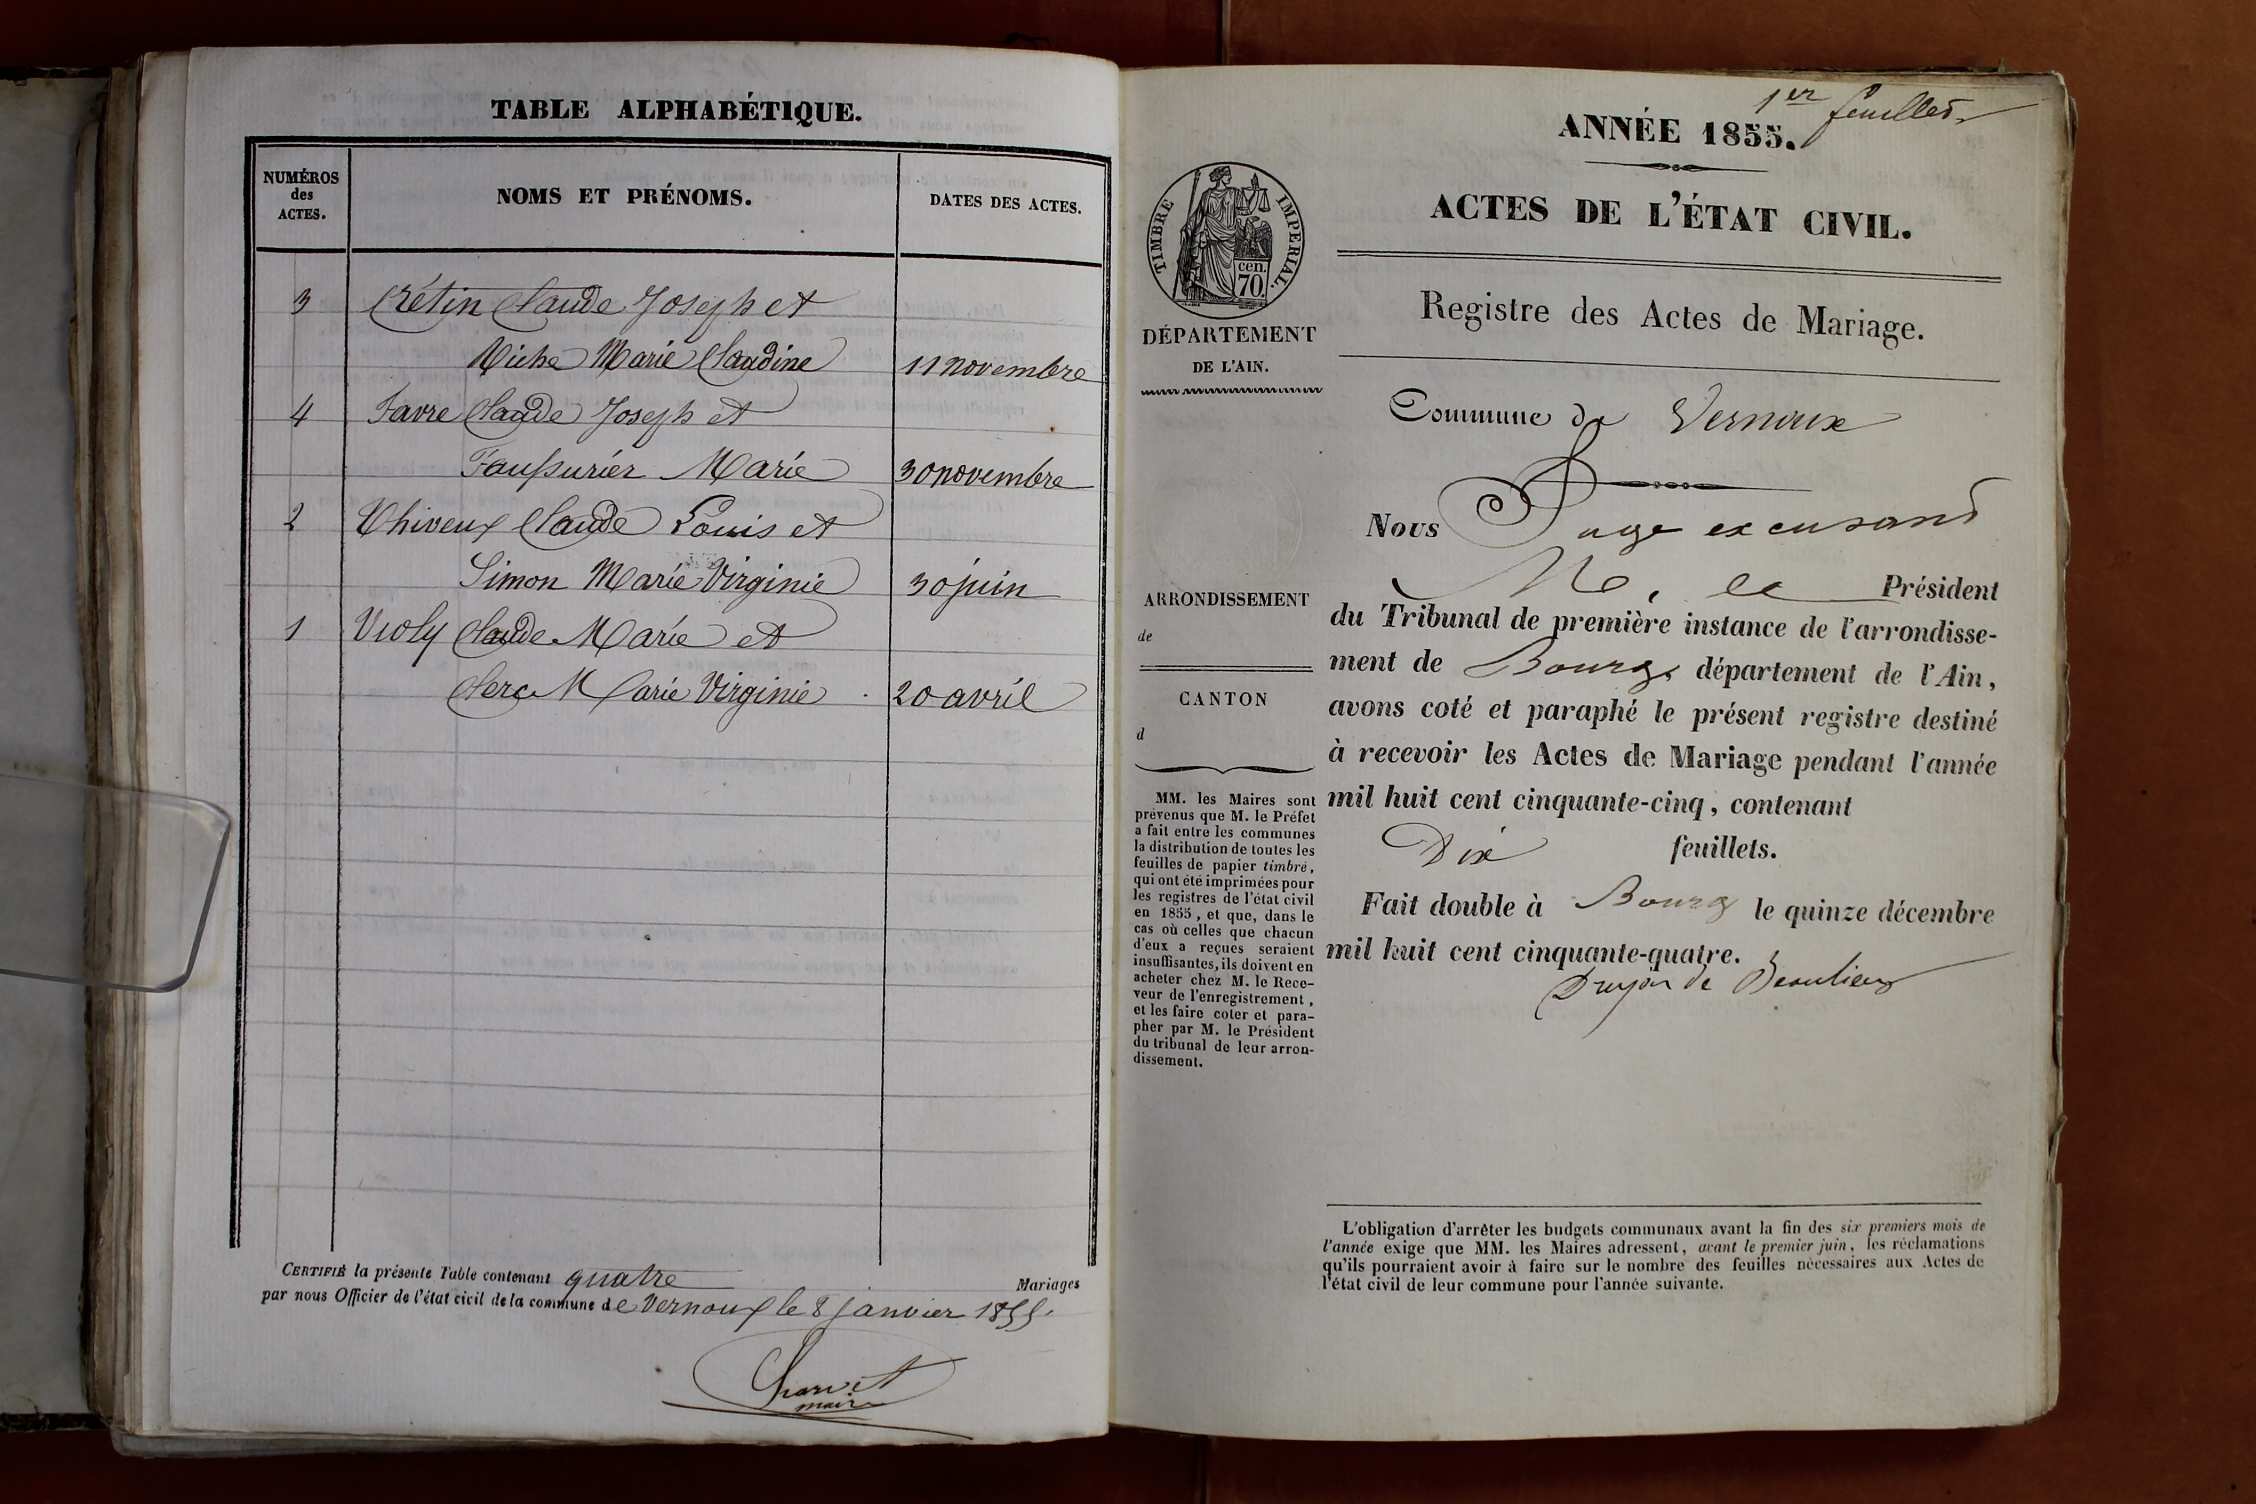 TABLE ALPHABÉTIQUE.
NUMÉROS
des
ACTES.
NOMS ET PRÉNOMS.
DATES DES ACTES.
3 Crétin Claude Joseph et
Marie Claudine 11 novembre
4 Favre Claude Joseph et
Faussurier Marie 30 novembre
2 Thiveux Claude Louis et
Simon Marie Virginie 30 juin
1 Violy Claude Marie et
Clerc Marie Virginie 20 avril
CERTIFIÉ la présente Table contenant quatre Mariages
par nous Officier de l'état civil de la commune de Vernoux le 8 janvier 1855.
Charvet
maire
1er feuillet
ANNÉE 1855.
ACTES DE L'ÉTAT CIVIL.
Registre des Actes de Mariage.
TIMBRE IMPERIAL.
cen.
70.
DÉPARTEMENT
DE L'AIN.
ARRONDISSEMENT
de
CANTON
d
MM. les Maires sont
prévenus que M. le Préfet
a fait entre les communes
la distribution de toutes les
feuilles de papier timbré,
qui ont été imprimées pour
les registres de l'état civil
en 1855, et que, dans le
cas où celles que chacun
d'eux a reçues seraient
insuffisantes, ils doivent en
acheter chez M. le Rece-
veur de l'enregistrement,
et les faire coter et para-
pher par M. le Président
du tribunal de leur arron-
dissement.
Commune de Vernoux
Nous Juge excusant
M. le Président
du Tribunal de première instance de l'arrondisse-
ment de Bourg, département de l'Ain,
avons coté et paraphé le présent registre destiné
à recevoir les Actes de Mariage pendant l'année
mil huit cent cinquante-cinq, contenant
Dix feuillets.
Fait double à Bourg le quinze décembre
mil huit cent cinquante-quatre.
Drujon de Beaulieu
L'obligation d'arrêter les budgets communaux avant la fin des six premiers mois de
l'année exige que MM. les Maires adressent, avant le premier juin, les réclamations
qu'ils pourraient avoir à faire sur le nombre des feuilles nécessaires aux Actes de
l'état civil de leur commune pour l'année suivante.